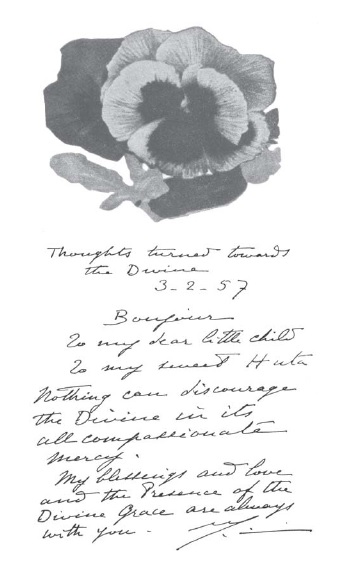 Thoughts turned towards
the Divine
3-2-57
Bonjour
To my dear little child
To my sweet Huta
Nothing can discourage
the Divine in its
all compassionate
mercy.
My blessings and love
and the Presence of the
Divine Grace are always
with you -